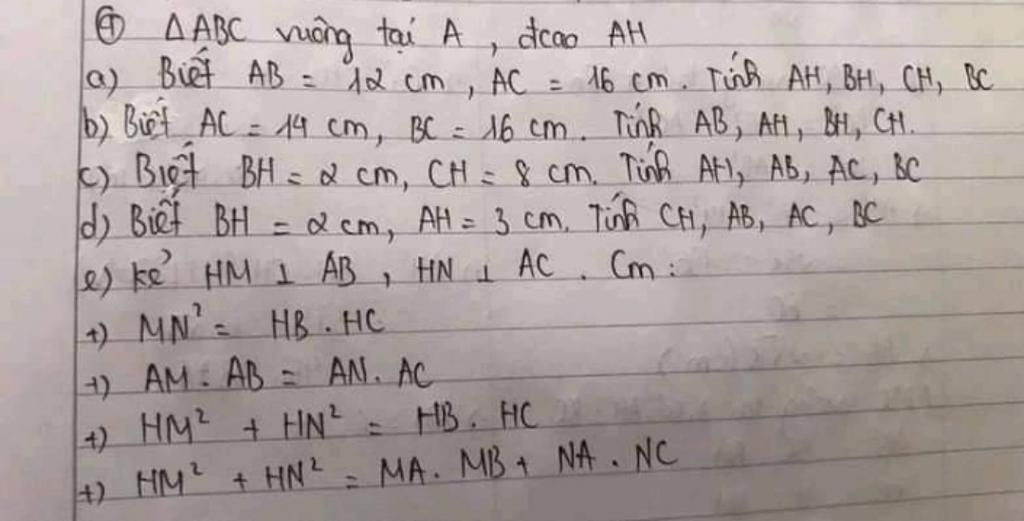 ⊕ ΔABC vuông tại A , đcao AH
a) Biết AB = 12 cm , AC = 16 cm . Tính AH, BH, CH, BC
b) Biết AC = 14 cm, BC = 16 cm . Tính AB, AH, BH, CH.
c) Biết BH = 2 cm, CH = 8 cm. Tính AH, AB, AC, BC
d) Biết BH = 2 cm, AH = 3 cm. Tính CH, AB, AC, BC
e) kẻ HM ⊥ AB , HN ⊥ AC . Cm :
+) MN² = HB . HC
+) AM . AB = AN . AC
+) HM² + HN² = HB . HC
+) HM² + HN² = MA . MB + NA . NC